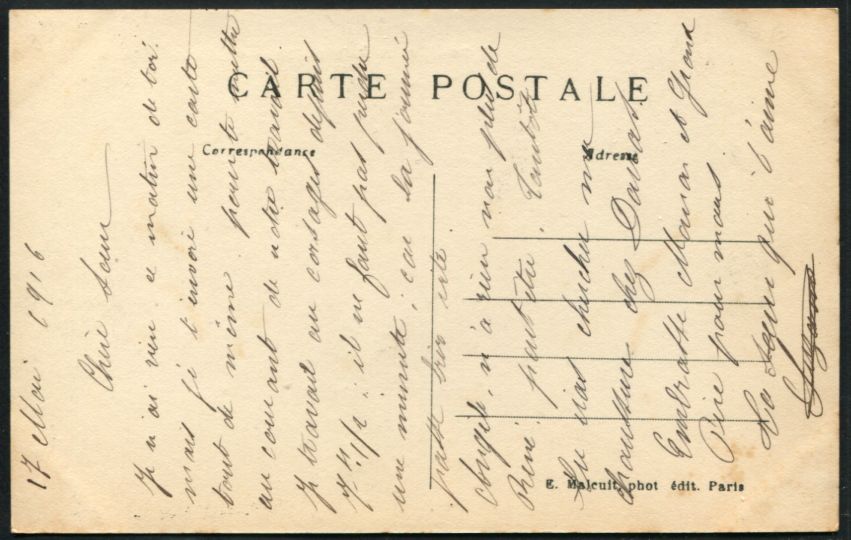 CARTE POSTALE
Correspondance
Adresse
17 Mai 1916
Chère Sœur
Je n'ai rien ce matin de toi.
mais je t'envoie une carte
tout de même pour te mettre
au courant de notre travail
Je travail au corsage depuis
7h 1/2 ; il ne faut pas perdre
une minute ; car la journée
passe bien vite.
rien non plus de
René peut-être tantôt.
chercher ma
chaussure chez
Embrasse Maman et Grand
Père pour nous
Ta Sœur qui t'aime
Suzanne
E. Malcuit, phot édit. Paris